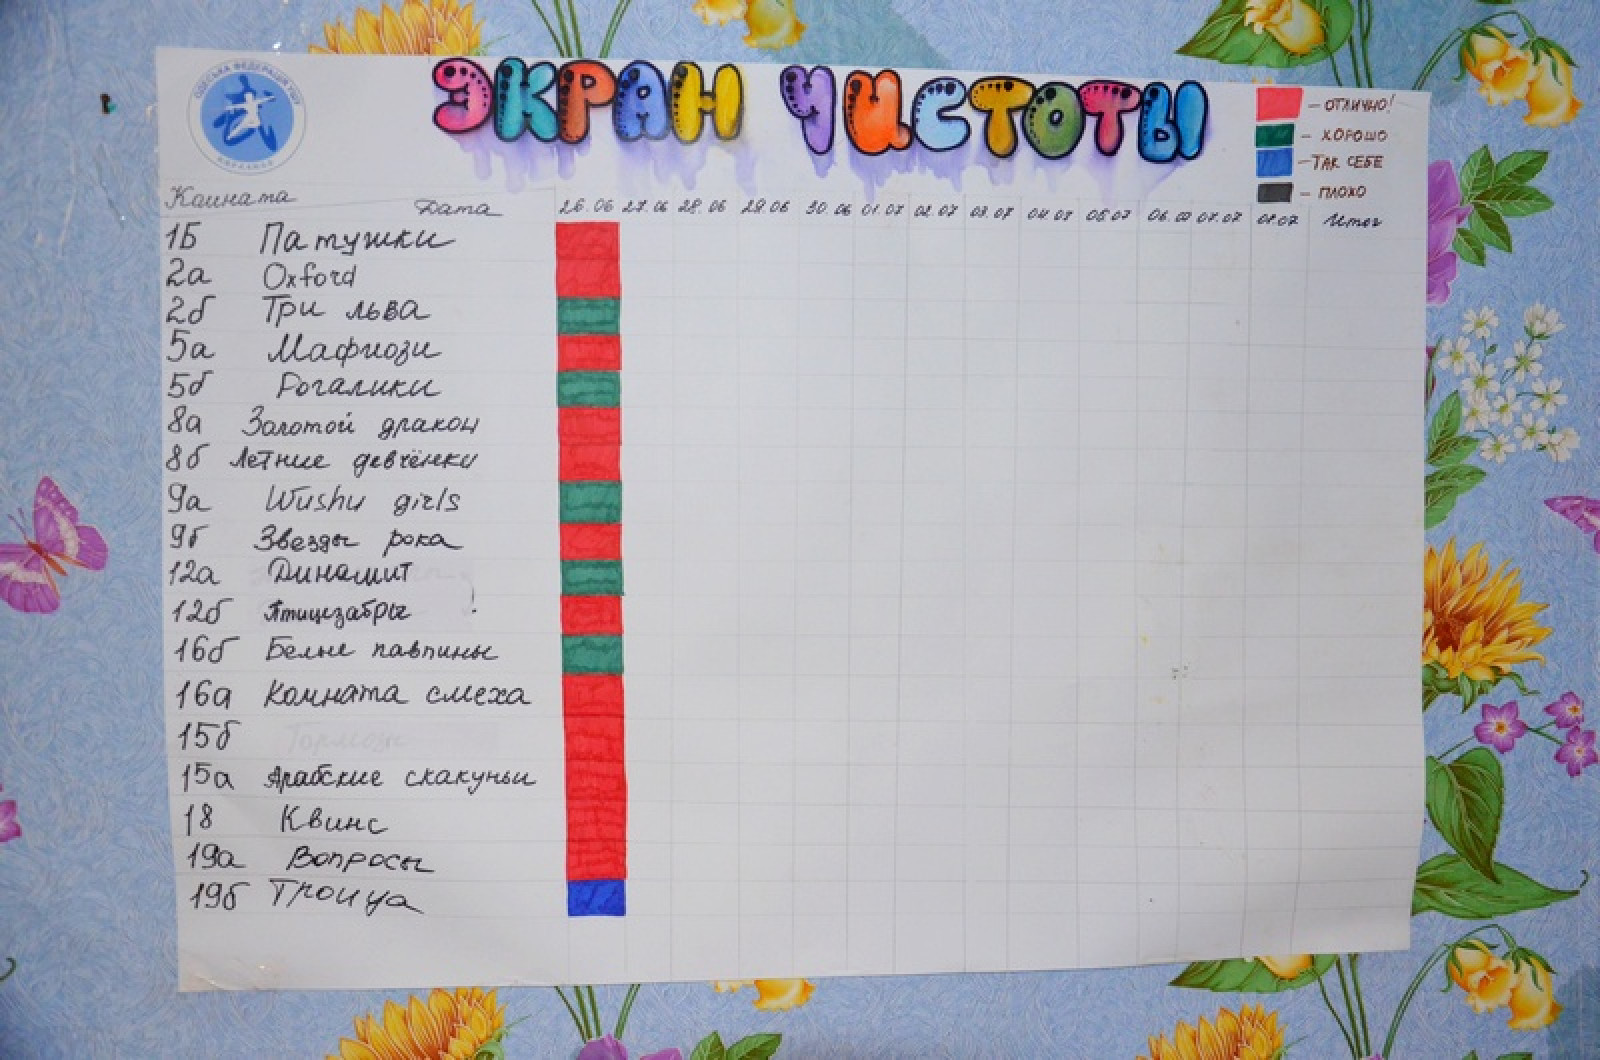 ЭКРАН ЧИСТОТЫ
ОДЕСЬКА ФЕДЕРАЦІЯ УШУ
– ОТЛИЧНО!
– ХОРОШО
– ТАК СЕБЕ
– ПЛОХО
Комната Дата 26.06 27.06 28.06 29.06 30.06 01.07 02.07 03.07 04.07 05.07 06.07 07.07 08.07 Итог
1Б Патушки
2а Oxford
2б Три льва
5а Мафиози
5б Рогалики
8а Золотой дракон
8б Летние девчёнки
9а Wushu girls
9б Звезды рока
12а Динамит
12б Птицезабры !
16б Белые павлины
16а Комната смеха
15б
15а Арабские скакуньи
18 Квинс
19а Вопросы
19б Троица